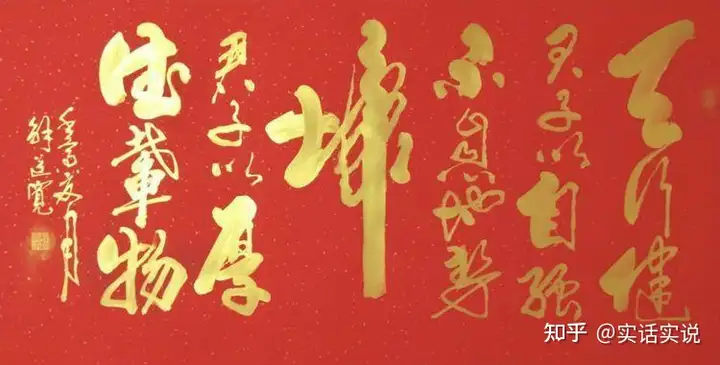 天行健
君子以自强
不息地势
坤
君子以厚
德載物
夏月
知乎 @实话实说